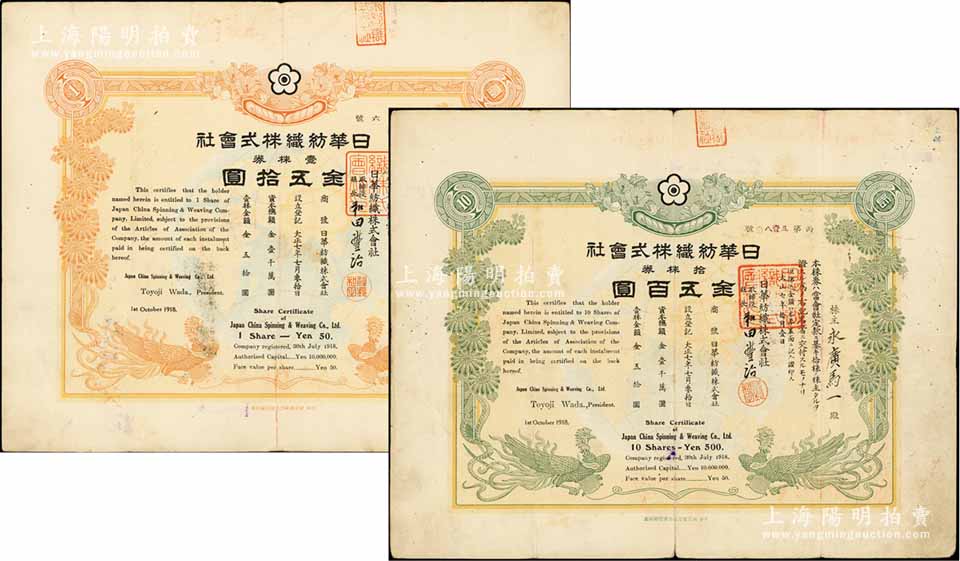 上海陽明拍賣
www.yangmingauction.com
六號
社會式株織紡華日
券株壹
圓拾五金
This certifies that the holder
named herein is entitled to 1 Share of
Japan China Spinning & Weaving Com-
pany, Limited, subject to the provisions
of the Articles of Association of the
Company, the amount of each instalment
paid in being certified on the back
hereof.
Japan China Spinning & Weaving Co., Ltd.
Toyoji Wada, President.
1st October 1918.
日華紡織株式會社
和田豐治
商號 日華紡織株式會社
資本總額 金壹千萬圓
設立登記 大正七年七月參拾日
壹株金額 金五拾圓
Share Certificate
of
Japan China Spinning & Weaving Co., Ltd.
1 Share — Yen 50.
Company registered, 30th July 1918.
Authorized Capital.... Yen 10,000,000.
Face value per share........ Yen 50.
10
社會式株織紡華日
券株拾
圓百五金
This certifies that the holder
named herein is entitled to 10 Shares of
Japan China Spinning & Weaving Com-
pany, Limited, subject to the provisions
of the Articles of Association of the
Company, the amount of each instalment
paid in being certified on the back
hereof.
Japan China Spinning & Weaving Co., Ltd.
Toyoji Wada, President.
1st October 1918.
株主 永廣馬一殿
日華紡織株式會社
取締役社長 和田豐治
商號 日華紡織株式會社
設立登記 大正七年七月參拾日
資本總額 金壹千萬圓
壹株金額 金五拾圓
Share Certificate
of
Japan China Spinning & Weaving Co., Ltd.
10 Shares — Yen 500.
Company registered, 30th July 1918.
Authorized Capital.... Yen 10,000,000.
Face value per share........ Yen 50.
上海陽明拍賣
www.yangmingauction.com